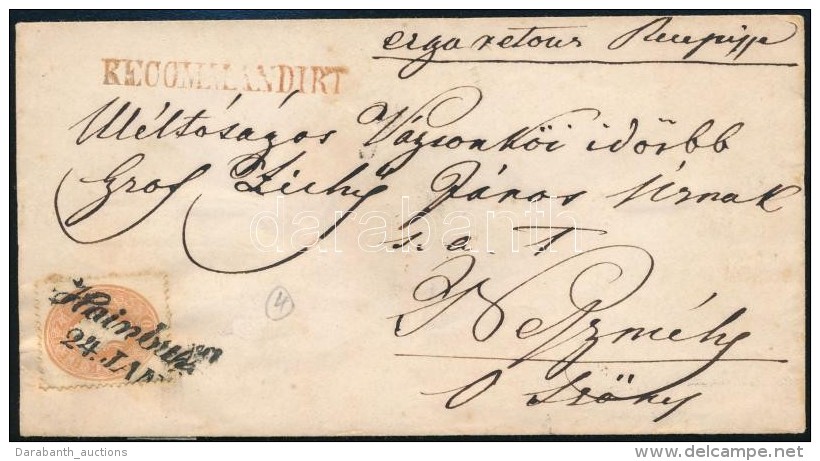 erga retour Recepisse
RECOMMANDIRT
Méltóságos Vázsonköi idősbb
Gróf Zichy János Úrnak
s. a. T
Neszmély
O Szőny
Hainburg
24. JAN
4
darabanth
Darabanth_auctions
delcampe.net